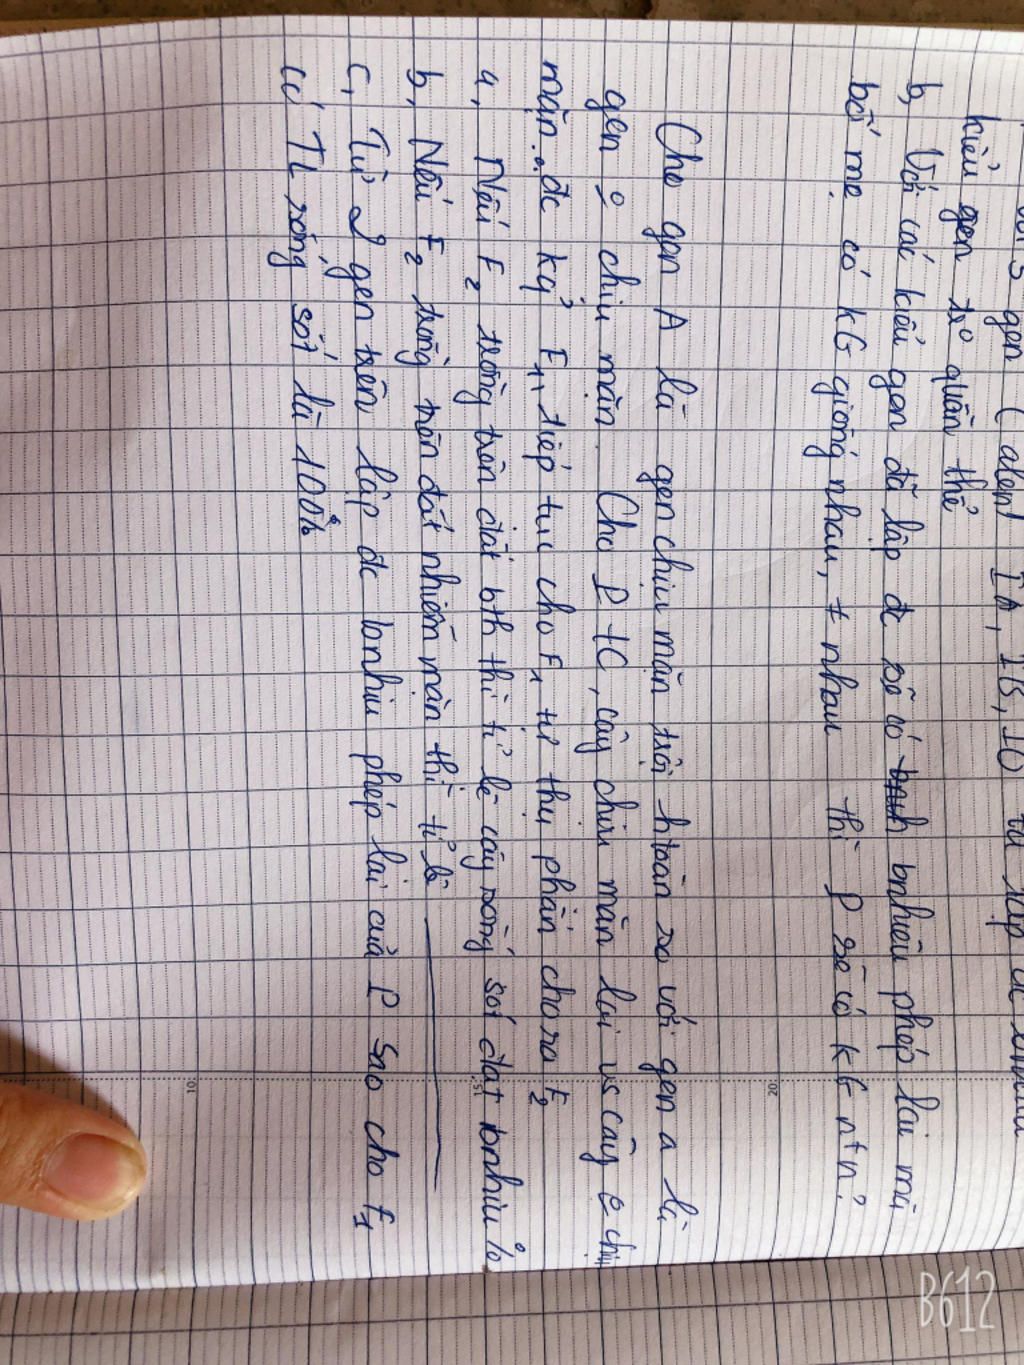 gen ( alen IA, IB, IO ta lập đc
kiểu gen trg quần thể
b, Với các kiểu gen đã lập đc sẽ có bnhiêu phép lai mà
bố mẹ có KG giống nhau, ≠ nhau thì P sẽ có KG ntn?
Cho gen A là gen chịu mặn trội htoàn so với gen a là
gen o chịu mặn. Cho P tC, cây chịu mặn lai vs cây o chịu
mặn. đc kq F1, tiếp tục cho F1 tự thụ phấn cho ra F2
a, Nếu F2 trồng trên đất bth thì tỉ lệ cây sống sót đạt bnhiu %
b, Nếu F2 trồng trên đất nhiễm mặn thì tỉ lệ
c, Từ 2 gen trên lập đc bnhiu phép lai của P sao cho F1
có TL sống sót là 100%
10
15
20
B612